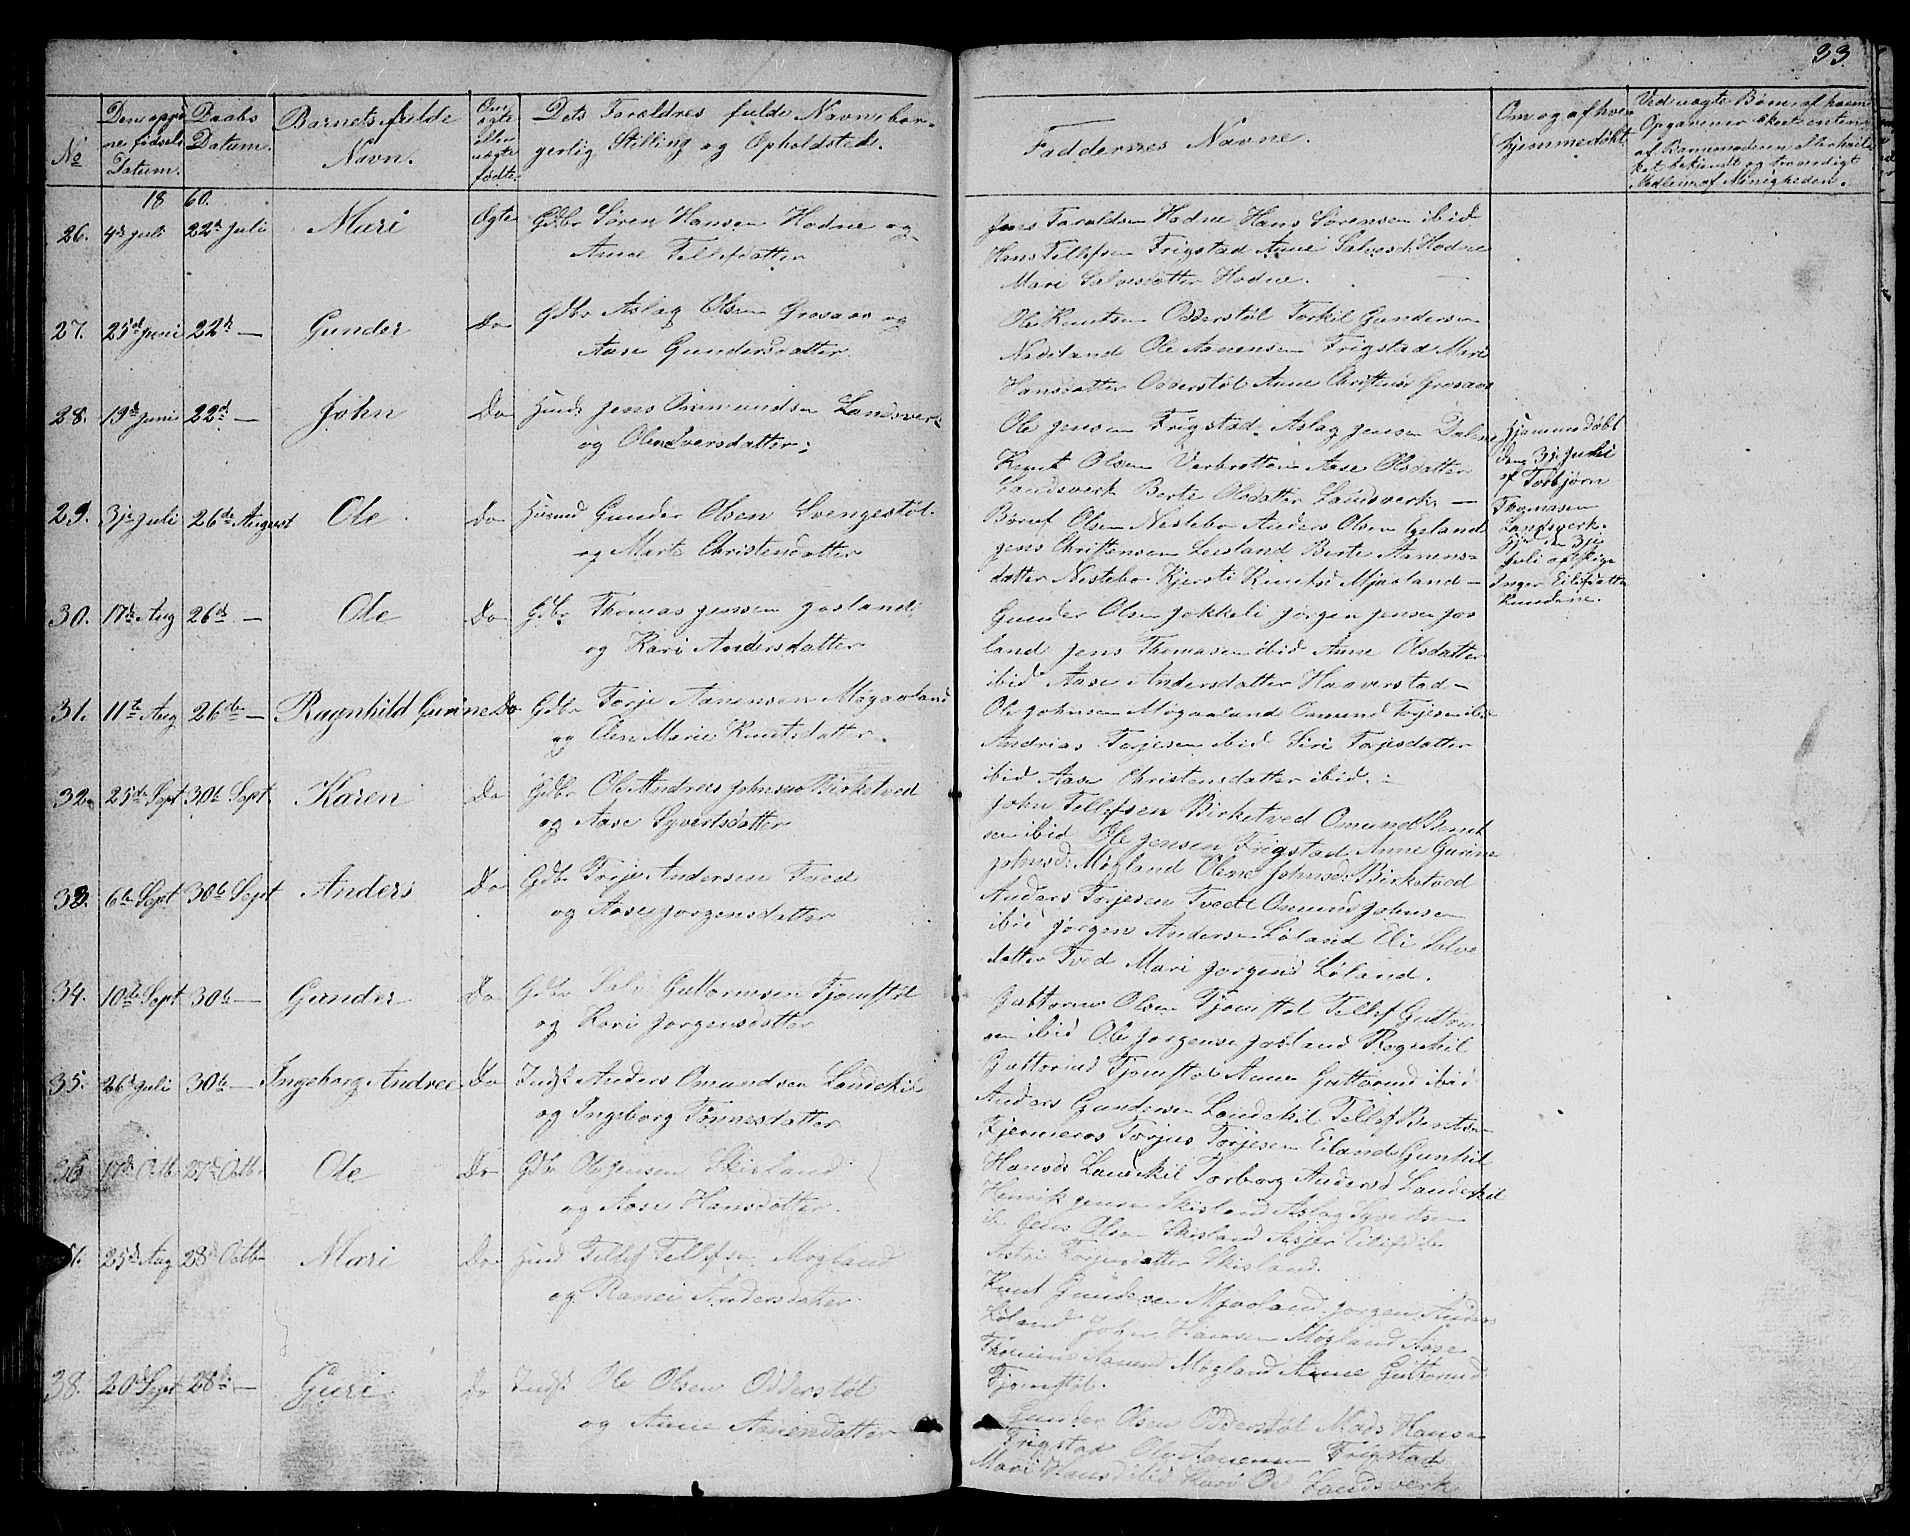 33.
No
Den opgivne fødsels Datum.
Daabs Datum.
Barnets fulde Navn.
Om ægte eller uægte fødte.
Dets Forældres fulde Navne borgerlig Stilling og Opholdsted.
Faddernes Navne.
Om og af hvem hjemmedøbt
Ved uægte Børn, af hvem
Opgavener skeet enten
af Barnemoderen eller
bekiendt og troværdigt
Medlem af Menigheden.
18 60.
26. 4de juli 22de juli Mari Ægte Gdbr Søren Hansen Hodne og
Anne Tellefdatter
Jens Taraldsen Hodne Hans Sørensen ibid
Hans Tellefsen Frigstad Anne Salvesd. Hodne
Mari Salvesdatter Hodne.
27. 25de juni 22de — Gunder Do Gdbr Aslag Olsen Grosaas og
Aase Gundersdatter.
Ole Knutsen Odderstøl Terkil Gundersen
Nodeland Ole Aanensen Frigstad Mari
Hansdatter Odderstøl Anne Christensd Grosaas
28. 19de juni 22de — John Do Huusd jens Osmundsen Landsverk
og Olene Iversdatter;
Ole jensen Frigstad. Aslag jensen Dalene
Knut Olsen Verbrotten Aase Olsdatter
Landsverk Berte Olsdatter Landsverk —
Hjemmedøbt
den 3je juli
af Torbjørn
Thomasen
Landsverk.
29. 3je juli 26de August Ole Do Huusmd Gunder Olsen Svengestøl
og Marte Christensdatter
Olsen Nestebø Anders Olsen
jens Christensen Leuland Berte Aanensdatter
Nestebø. Kjersti Knutsd Mjaaland —
Hjd den 3je
juli af Pige
Inger Eilefsdatter
30. 17de Aug 26de — Ole Do Gdbr Thomas jensen josland
og Kari Andersdatter
Gunder Olsen jokkeli jørgen jensen josland
jens Thomasen ibid Anne Olsdatter
ibid Aase Andersdatter Haaverstad —
31. 11te Aug 26de — Ragnhild Gurine Do Gdbr Torje Aanensen Møgaaland
og Olen Marie Knutsdatter.
Ole johnsen Møgaaland Osmund Torjesen ibid
Andreas Torjesen ibid Siri Torjesdatter
ibid Aase Christensdatter ibid.
32. 25de Sept 30te Sept. Karen Do Gdbr Ole Andreas johnsen Birketved
og Aase Syvertsdatter
john Tellefsen Birketved Omund Berntsen
ibid Ole jensen Frigstad Anne Gurine
johnsd: Møgland Olene johnsd: Birketved
33. 6te Sept 30te Sept Anders Do Gdbr Torje Andersen Tved
og Aase jørgensdatter
Anders Torjesen Tvedt Omund johnsen
ibid jørgen Andersen Løland Eli Salvedatter
Tved Mari jørgensd Løland.
34. 10de Sept 30te — Gunder Do Gdbr Salv Guttormsen Tjomstøl
og Kari jørgensdatter
Guttorm Olsen Tjomstøl Tellef Guttormsen
ibid Ole jørgensen josland Ragnhil
Guttormsd Tjomstøl Anne Guttormsd ibid
35. 26de juli 30te — Ingeborg Andrea Do Indst Anders Omundsen Landekil
og Ingeborg Tønnesdatter
Anders Gundersen Landekil Tellef Berntsen
Fjermeros Torjus Torjesen Eiland Gunhil
Hansd: Landekil Torborg Andersd Landekil
36 17de Octb. 27de Octb. Ole Do Gdbr Ole jensen Skisland
og Aase Hansdatter.
Henrik jensen Skisland Aslag Syvertsen
ib jens Olsen Skisland Asjer Eilefsd ib
Astri Torjusdatter Skisland.
37. 25de Aug 28de Octb. Mari Do Husd Tellef Tellefsen Møgland
og Ranei Andersdatter
Knut Gundersen Mjaaland jørgen Anders
Løland john Hansen Møgland Aase
Thomine Aanensd Møgland Anne Guttormsd
Tjomstøl.
38. 20de Sept 28de — Guri Do Indst Ole Olsen Odderstøl
og Anne Aanensdatter
Gunder Olsen Odderstøl Mads Hansen
Frigstad Ole Aanensen Frigstad
Mari Hansd ibid Kari Ol Landsverk